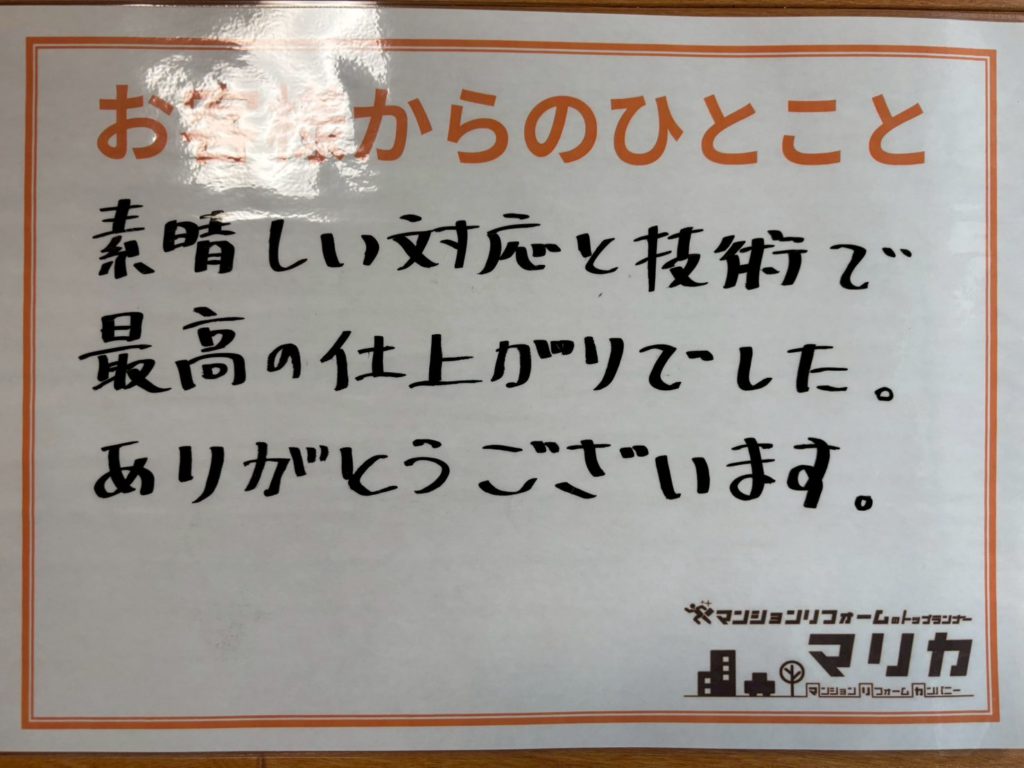 お客様からのひとこと
素晴しい対応と技術で
最高の仕上がりでした。
ありがとうございます。
マンションリフォームのトップランナー
マリカ
マンションリフォームカンパニー